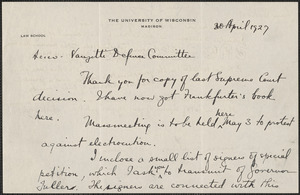 THE UNIVERSITY OF WISCONSIN
MADISON
LAW SCHOOL
30 April 1927
Sacco-Vanzetti Defense Committee
Thank you for copy of last Supreme Court
decision. I have now got Frankfurter's book
here. Massmeeting is to be held here May 3 to protest
against electrocution.
I inclose a small list of signers of special
petition, which I ask you to transmit to Governor
Fuller. The signers are connected with this